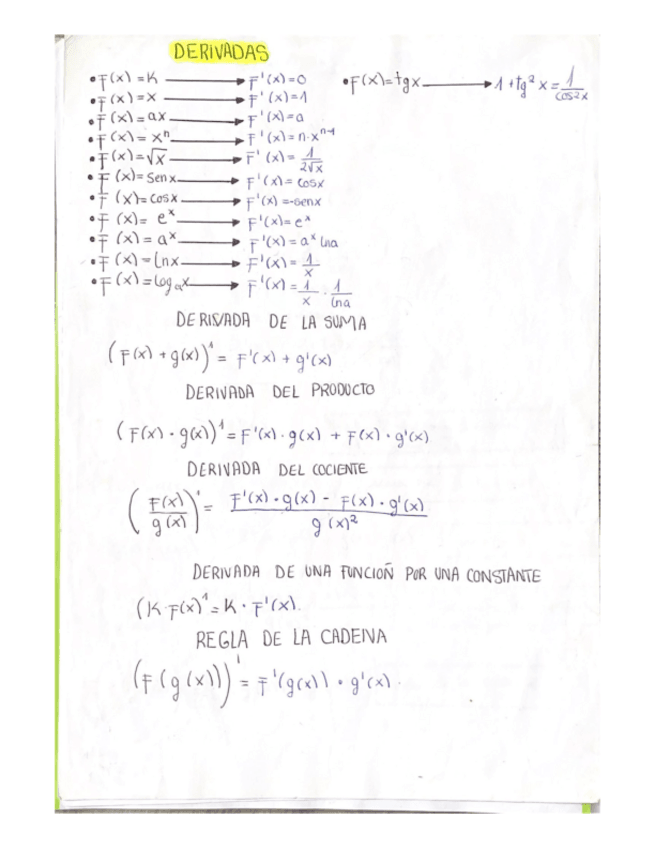 DERIVADAS
• F(x) = K → F'(x)=0
• F(x)=tgx → 1+tg² x = 1/cos2x
• F(x) = x → F'(x)=1
• F(x) = ax → F'(x)=a
• F(x) = xⁿ → F'(x)=n·xⁿ⁻¹
• F(x)=√x → F'(x)= 1/2√x
• F(x)= Senx → F'(x)= cosx
• F(x)= cosx → F'(x)=-senx
• F(x)= eˣ → F'(x)= eˣ
• F(x) = aˣ → F'(x)= aˣ lna
• F(x) = lnx → F'(x)= 1/x
• F(x) = logₐx → F'(x) = 1/x · 1/lna
DERIVADA DE LA SUMA
(F(x) + g(x))' = F'(x) + g'(x)
DERIVADA DEL PRODUCTO
(F(x) · g(x))' = F'(x) · g(x) + F(x) · g'(x)
DERIVADA DEL COCIENTE
(F(x)/g(x))' = F'(x) · g(x) - F(x) · g'(x) / g(x)²
DERIVADA DE UNA FUNCIOÑ POR UNA CONSTANTE
(K·F(x)' = K · F'(x).
REGLA DE LA CADENA
(F(g(x)))' = F'(g(x)) · g'(x).